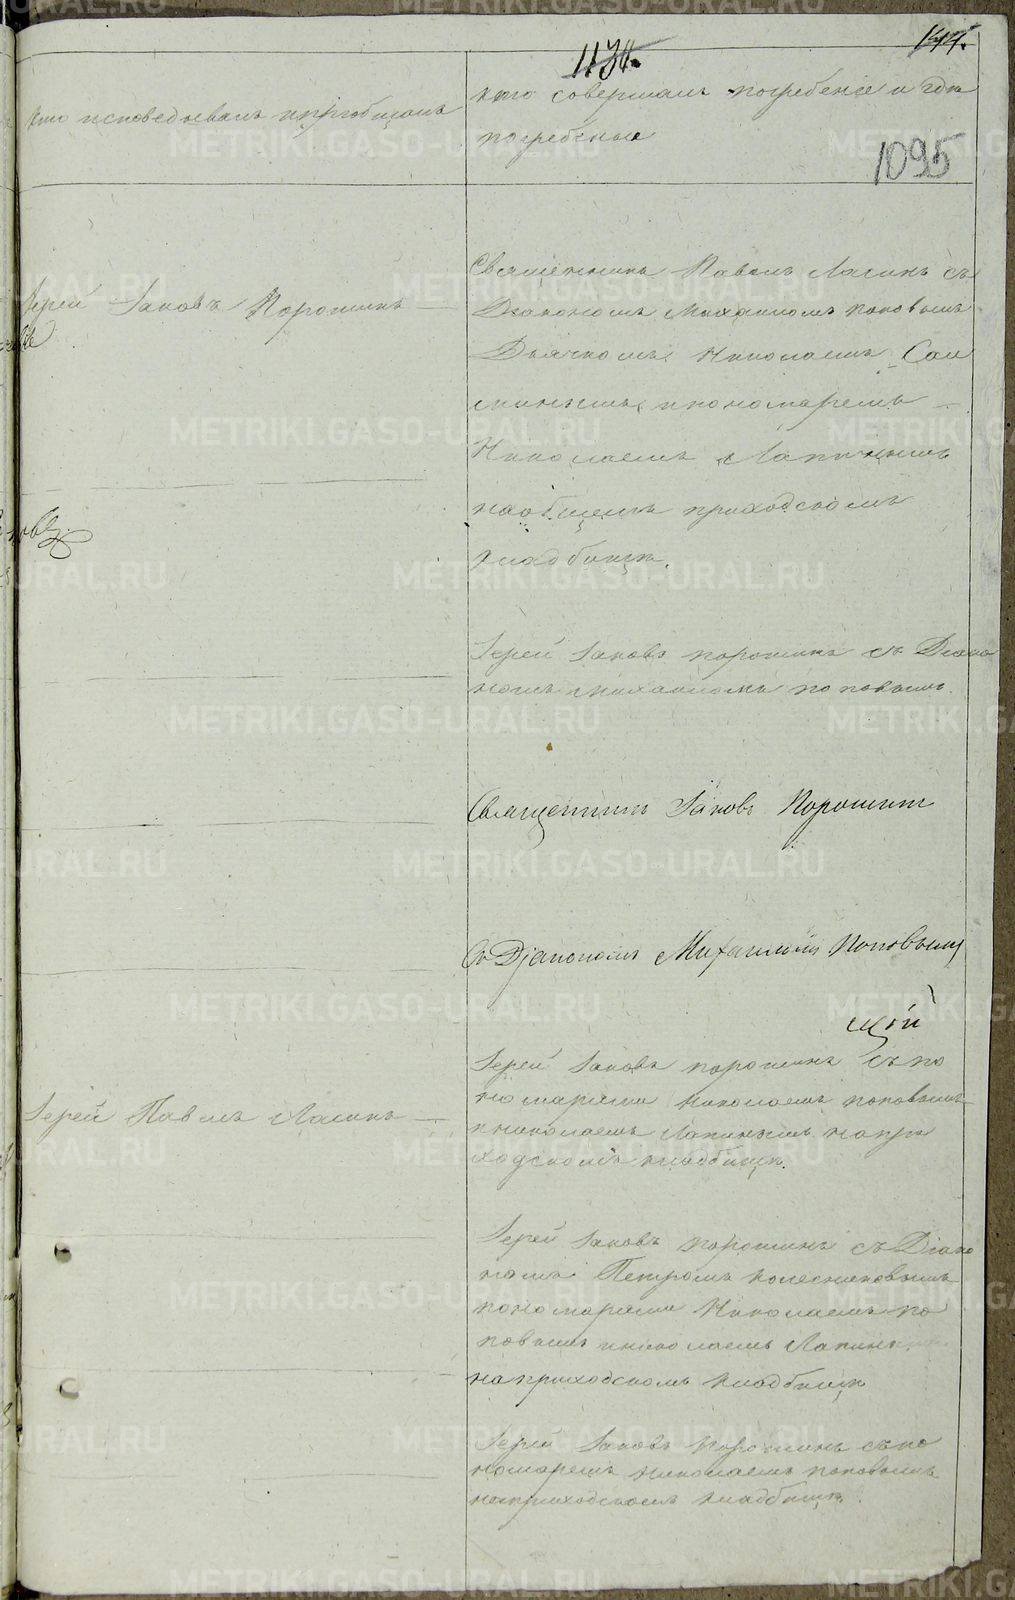 1130.
144.
кто исповедывалъ ипріобщалъ
кто совершалъ погребеніе и гдѣ
погребены
1095
Іерей Іаковъ Порошинъ
Священникъ Павелъ Ляпинъ съ
Діакономъ Михаиломъ поповымъ
Дьячкомъ Николаемъ
ипономаремъ
Николаемъ Ляпинымъ
наобщемъ приходскомъ
кладбищѣ.
Іерей Іаковъ порошинъ съ Діако
номъ Михаиломъ поповымъ.
Священникъ Іаковъ Порошинъ
Съ Діакономъ Михаиломъ Поповымъ
Іерей Іаковъ порошинъ съ по
номарями Николаемъ поповымъ
иниколаемъ Ляпинымъ напри
ходскомъ кладбищѣ.
Іерей Павелъ Ляпинъ
Іерей Іаковъ порошинъ съ Діако
номъ Петромъ колесниковымъ
пономарями Николаемъ по
повымъ иниколаемъ Ляпинымъ
наприходскомъ кладбищѣ
Іерей Іаковъ порошинъ съ по
номаремъ николаемъ поповымъ
наприходскомъ кладбищѣ.
METRIKI.GASO-URAL.RU